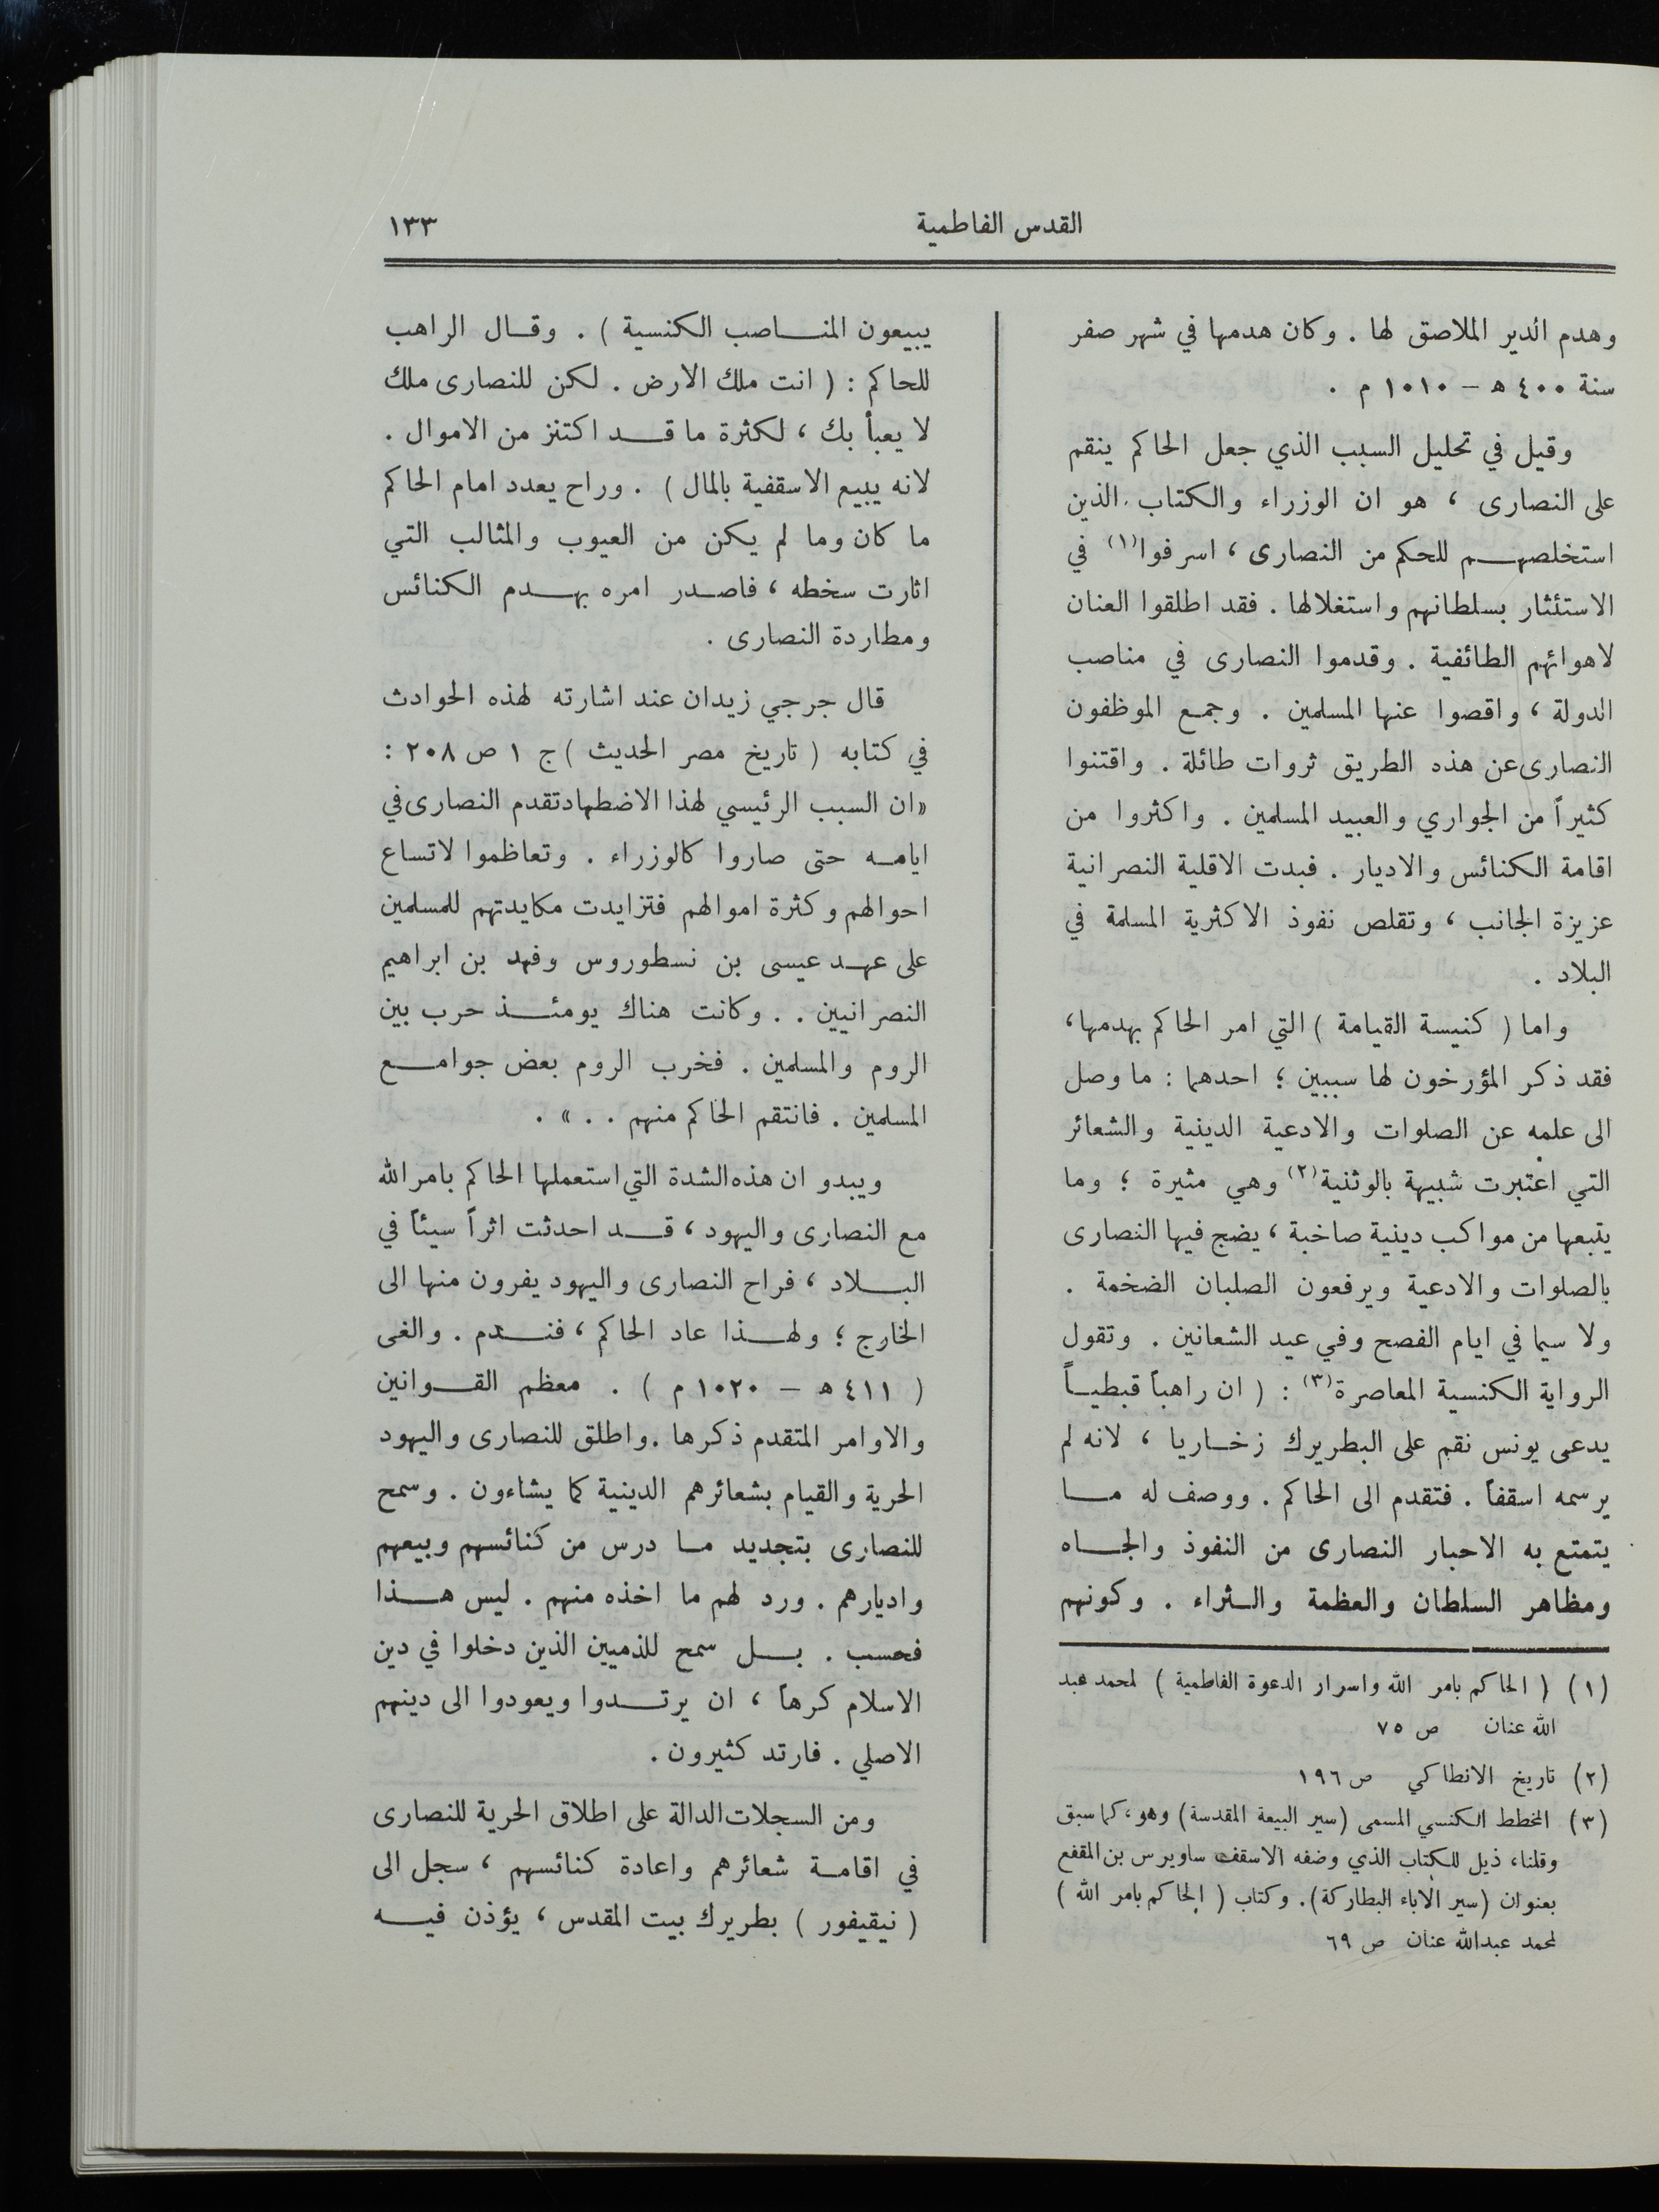 القدس الفاطمية
١٣٣
وهدم الدير الملاصق لها . وكان هدمها في شهر صفر
سنة ٤٠٠ ه – ١٠١٠ م .
وقيل في تحليل السبب الذي جعل الحاكم ينقم
على النصارى ، هو ان الوزراء والكتاب الذين
استخلصهم للحكم من النصارى ، اسرفوا(١) في
الاستئثار بسلطانهم واستغلالها . فقد اطلقوا العنان
لاهوائهم الطائفية . وقدموا النصارى في مناصب
الدولة ، واقصوا عنها المسلمين . وجمع الموظفون
النصارى عن هذه الطريق ثروات طائلة . واقتنوا
كثيراً من الجواري والعبيد المسلمين . واكثروا من
اقامة الكنائس والاديار . فبدت الاقلية النصرانية
عزيزة الجانب ، وتقلص نفوذ الاكثرية المسلمة في
البلاد .
واما ( كنيسة القيامة ) التي امر الحاكم بهدمها،
فقد ذكر المؤرخون لها سببين ؛ احدهما : ما وصل
الى علمه عن الصلوات والادعية الدينية والشعائر
التي اعتبرت شبيهة بالوثنية(٢) وهي مثيرة ؛ وما
يتبعها من مواكب دينية صاخبة ، يضج فيها النصارى
بالصلوات والادعية ويرفعون الصلبان الضخمة .
ولا سيما في ايام الفصح وفي عيد الشعانين . وتقول
الرواية الكنسية المعاصرة(٣) : ( ان راهباً قبطيـاً
يدعى يونس نقم على البطريرك زخـاريا ، لانه لم
يرسمه اسقفاً . فتقدم الى الحاكم . ووصف له مـا
يتمتع به الاحبار النصارى من النفوذ والجـاه
ومظاهر السلطان والعظمة والـثراء . وكونهم
(١) ( الحاكم بامر الله واسرار الدعوة الفاطمية ) لمحمد عبد
الله عنان ص ٧٥
(٢) تاريخ الانطاكي ص ١٩٦
(٣) الخطط الكنسي المسمى (سير البيعة المقدسة) وهو، كما سبق
وقلنا، ذيل للكتاب الذي وضفه الاسقف ساويرس بن المقفع
بعنوان (سير الآباء البطاركة). وكتاب ( الحاكم بامر الله )
لمحمد عبدالله عنان ص ٦٩
يبيعون المنـاصب الكنسية ) . وقـال الراهب
للحاكم : ( انت ملك الارض . لكن للنصارى ملك
لا يعبأ بك ، لكثرة ما قـد اكتنز من الاموال .
لانه يبيع الاسقفية بالمال ) . وراح يعدد امام الحاكم
ما كان وما لم يكن من العيوب والمثالب التي
اثارت سخطه ، فاصـدر امره بهـدم الكنائس
ومطاردة النصارى .
قال جرجي زيدان عند اشارته لهذه الحوادث
في كتابه ( تاريخ مصر الحديث ) ج ١ ص ٢٠٨ :
«ان السبب الرئيسي لهذا الاضطهاد تقدم النصارى في
ايامـه حتى صاروا كالوزراء . وتعاظموا لاتساع
احوالهم وكثرة اموالهم فتزايدت مكايدتهم للمسلمين
على عهـد عيسى بن نسطوروس وفهد بن ابراهيم
النصرانيين . . وكانت هناك يومئـذ حرب بين
الروم والمسلمين . فخرب الروم بعض جوامـع
المسلمين . فانتقم الحاكم منهم . . » .
ويبدو ان هذه الشدة التي استعملها الحاكم بامر الله
مع النصارى واليهود ، قـد احدثت اثراً سيئاً في
البـلاد ، فراح النصارى واليهود يفرون منها الى
الخارج ؛ ولهـذا عاد الحاكم ، فنـدم . والغى
( ٤١١ ه – ١٠٢٠ م ) . معظم القـوانين
والاوامر المتقدم ذكرها . واطلق للنصارى واليهود
الحرية والقيام بشعائرهم الدينية كما يشاءون . وسمح
للنصارى بتجديد مـا درس من كنائسهم وبيعهم
واديارهم . ورد لهم ما اخذه منهم . ليس هـذا
فحسب . بـل سمح للذميين الذين دخلوا في دين
الاسلام كرهاً ، ان يرتـدوا ويعودوا الى دينهم
الاصلي . فارتد كثيرون .
ومن السجلات الدالة على اطلاق الحرية للنصارى
في اقامـة شعائرهم واعادة كنائسهم ، سجل الى
( نيقيفور ) بطريرك بيت المقدس ، يؤذن فيـه